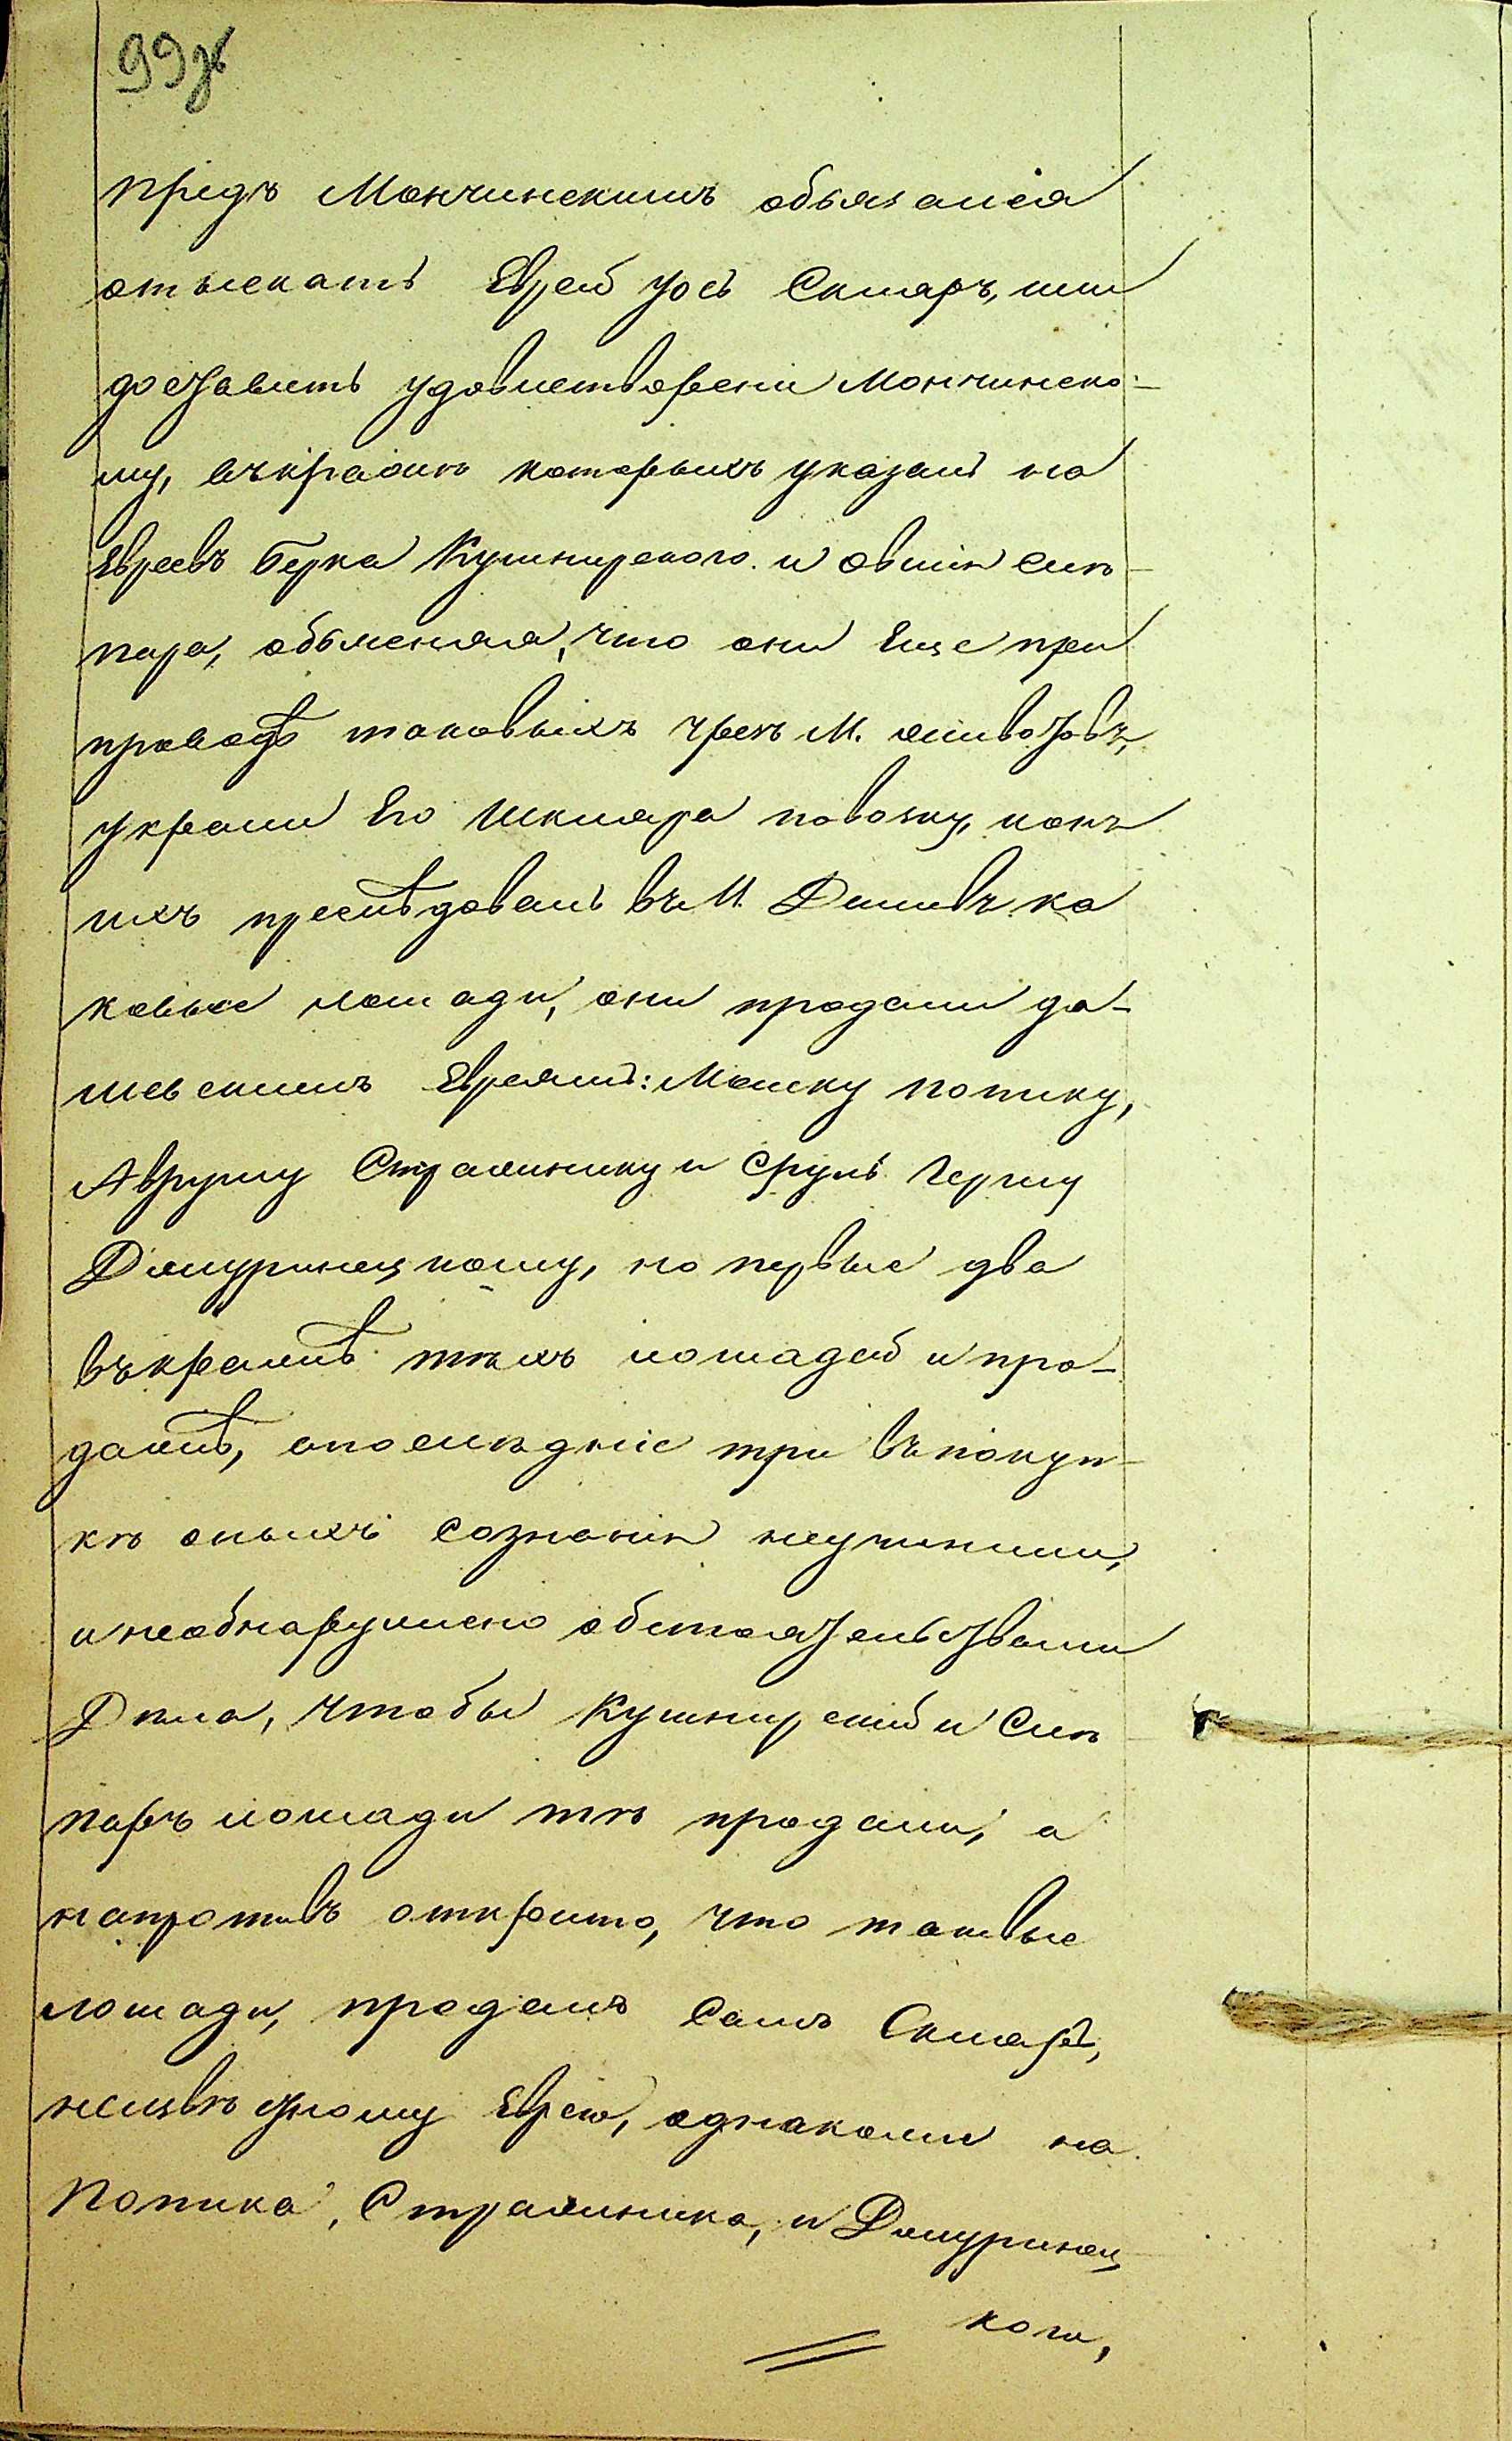 99 зв
предъ Мончинскимъ обязался
отыскать Еврей Уось Скляръ, или
доставить удовлетворени Мончинско-
му, въкражѣ которыхъ указалъ на
Евреевъ Берка Кушнирского и Овшія Слѣ-
пара, объясняя, что они Еще при
проводѣ таковыхъ чрезъ М. Ливотовъ,
украли Его Шкляра повозку, какъ
ихъ преслѣдовалъ въ М. Дашевъ ка
ковые лошади, они продали да-
шевскимъ Евреямъ: Мошку Потику,
Авруму Стражнику и Сруль Гершу
Джуринецкому, но первые два
въкражѣ тѣхъ лошадей и про-
дажѣ, апослѣдніе три въпокуп-
кѣ оныхъ сознанія неучинили,
и необнаружено обстоятельствами
Дѣла, чтобы Кушнирскій и Слѣ
паръ лошади тѣ продали, а
напротивъ открыто, что таковые
лошади, продалъ самъ Скляръ,
неизвѣстному Еврею, однакожъ на
Потика, Стражника, и Джуринец
кого,